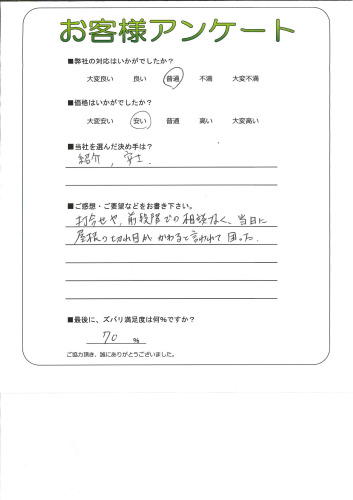 お客様アンケート
■弊社の対応はいかがでしたか？
大変良い 良い 普通 不満 大変不満
■価格はいかがでしたか？
大変安い 安い 普通 高い 大変高い
■当社を選んだ決め手は？
紹介，安さ．
■ご感想・ご要望などをお書き下さい。
打合せや、前段階での相談なく、当日に
屋根の切れ目が かわると言われて困った．
■最後に、ズバリ満足度は何％ですか？
70 ％
ご協力頂き、誠にありがとうございました。